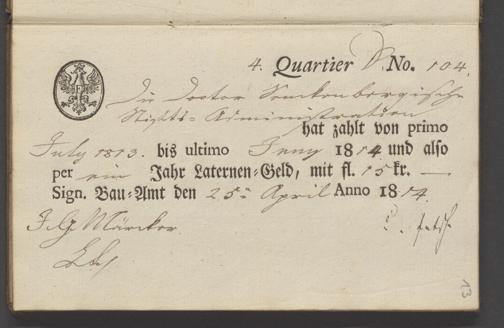 4. Quartier D. No. 104.
Die Doctor Senckenbergische
Stifts-Administration
hat zahlt von primo
July 1813. bis ultimo Juny 1814 und also
per ein Jahr Laternen-Geld, mit fl. 15 kr. —
Sign. Bau-Amt den 25ⁿ April Anno 1814.
J. G. Märcker
13